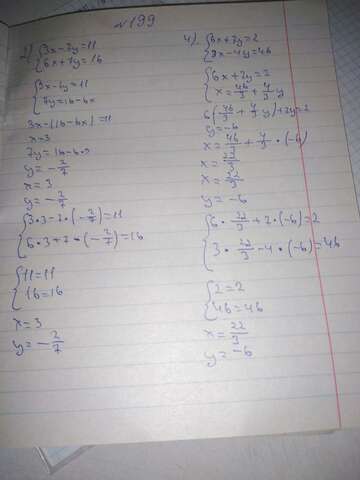 №199
2) {3x-7y=11
{6x+7y=16
{3x-7y=11
{7y=16-6x
3x-(16-6x)=11
x=3
7y=16-6·3
y=-2/7
x=3
y=-2/7
{3·3-7·(-2/7)=11
{6·3+7·(-2/7)=16
{11=11
{16=16
x=3
y=-2/7
4) {6x+7y=2
{3x-4y=46
{6x+7y=2
{x=46/3+4/3y
6(46/3+4/3y)+7y=2
y=-6
x=46/3+4/3·(-6)
x=22/3
x=22/3
y=-6
{6·22/3+7·(-6)=2
{3·22/3-4·(-6)=46
{2=2
{46=46
x=22/3
y=-6